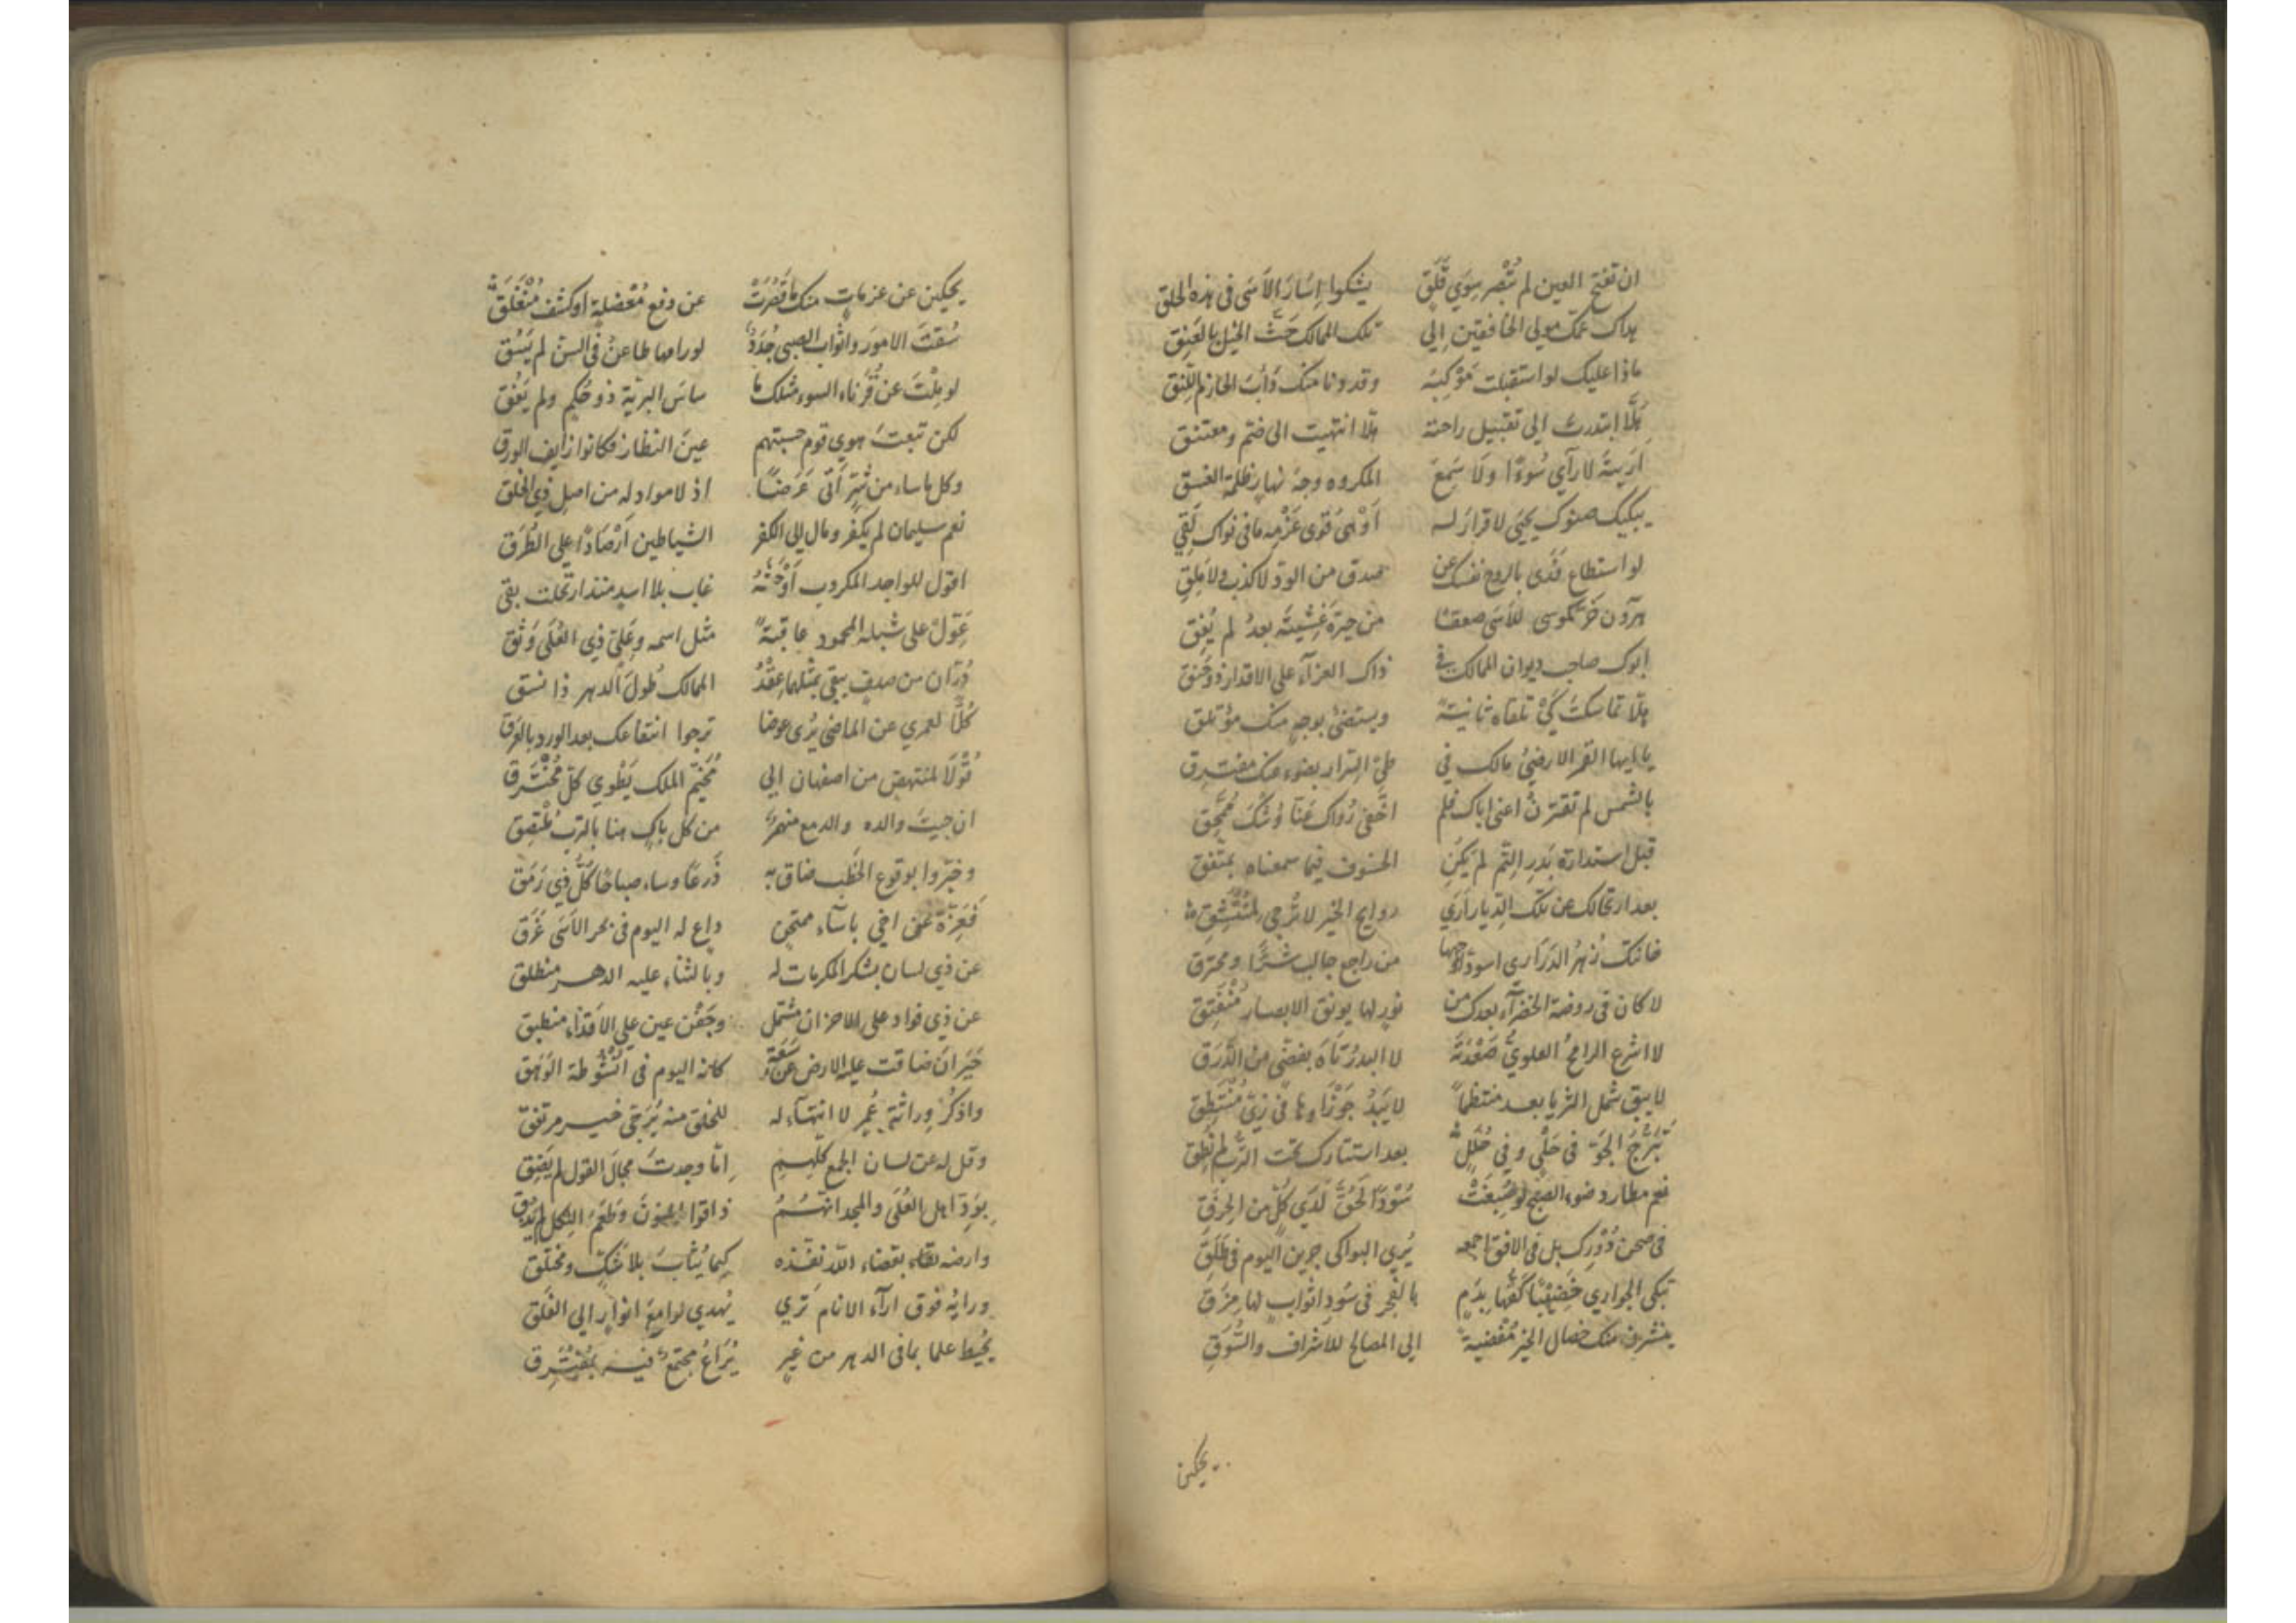 ان تفتح العين لم تُبْصِر سِوَي قَلِقٍ يشكوا اِسَارَ الاَسَى فى هذه الحلق
هداك عمّك مولي الخافقين اِلي تلك الممالك حَثَّ الخيل بالعَنِق
ماذا عليك لو استقبلت مَوْكِبَه وقد دنا منك دَأبَ الحازم اللَّبِق
هَلّا ابتدرتَ الي تقبيل راحته هلا انتهيت الى ضمّ ومعتنق
اَرَيتَهُ لا رآي سُوءًا ولَا سَمِعَ المكروه وجهَ نهارٍ ظلمة الغسق
يبكيك صنوك يحيَى لا قرارَ له اَوْهَى قُوَى عَزْمِه ما فى نواك لَقِي
لو استطاع فَدَى بالروح نفسك عن صدق من الودّ لا كذب ولا مَلِقِ
هرون خَرَّ كموسى للاَسَى صعقا من حيرةٍ غَشِيَتْه بعدُ لم يُفِق
ابوك صاحب ديوان الممالك فى ذاك العزآء على الاقدار ذو حَنَق
هلّا تماسكتَ كَيْ تلقاه ثانيةً ويستضئَ بوجهٍ منك مؤتلق
يا ايها القمر الارضيُّ مالك في طيّ السِّرار بضوء منك مفترق
بالشمس لم تقترنْ اعنى اباك فلم اخفى رُواك عَنَا وُشْكَ مُمَّحِق
قبل استدارة بَدرِ التِّم لم يَكُنِ الخسوف فيما سمعناه بمتّفق
بعد ارتحالك عن تلك الديار اَرَي روايح الخير لا تُرجي لمُنْتَشِقِ
خانتك زُهرُ الدَّرَارى اسودّ اوجهها من راجع جالب شرًّا ومحترق
لا كان فى روضة الخضرآء بعدك من نَوْرٍ لها يونق الابصار مُنْفَتِق
لا اشرع الرامحُ العلويُّ صَعْدَتَهُ لا البدر تاه بفضّىٍ من الدَّرَق
لا يبق شمل الثريا بعد منتظماً لا يَبْدُ جَوْزَاوها فى زيّ مُنْتَطِق
تَبَرُّجَ الجَوّ فى حَلْيٍ وفى حُلَلٍ بعد استتارك تحت الترب لم نُطِق
نعم مطارد ضوء الصبح لو صُبِغَتْ سُوْدًا لَحُقَّ لَدَي كلّ من الحِرَق
فى صحن دُوْرِك بل فى الافق اجمعه يُرِي البواكى جرين اليوم فى طَلَقِ
تبكى الجواري خَضِيْبًا كَفُّها بدَمٍ بالفجر فى سُودِ اثوابٍ لها مِزَق
ينشرن منك خصال الخير مُفْضِيةً الى المصالح للاَشراف والسُّوَقِ
يحكين
يحكين عن عزماتٍ منك ما قَصُرَتْ عن دفع مُعْضلةٍ او كشف مُنْغَلَقِ
سُقْتَ الامورَ واثواب الصبى جُدَدٌ لو رامها طاعنٌ فى السنّ لم يَسُق
لو مِلْتَ عن قُرَناء السوء مثلك ما ساسَ البريّة ذو حُكمٍ ولم يَفُق
لكن تبعتَ هوي قوم حسبتهم عينَ النظار فكانوا زايف الورق
وكل ما ساء من شرٍّ اَتى عَرَضًا اذ لا مواد له من اصل ذي الخلق
نعم سليمان لم يكفر ومال الى الكفر الشياطين اَرْصَادًا على الطُرَق
اقول للواجد المكروب اَوْحَشَهُ غاب بلا اسدٍ منذ ارتحلت بقى
عَوِّلْ على شبله المحمود عاقبةً مثل اسمه وعَلِيٍّ ذي العُلَى وَثِق
دُرّان من صدفٍ يبقى بمثلهما عِقْدُ الممالك طولَ الدهر ذا نسق
كُلًّا لعمري عن الماضى يُرَى عوضا ترجوا انتفاعك بعد الورد بالعَرَق
قُوْلَا لمنتهض من اصفهان الى مُخَيَّم الملك يَطْوي كلَّ مُخْتَرَق
ان جيتَ والده والدمع منهمرٌ من كل باكٍ هنا بالترب مُلْتَصِق
وخبّروا بوقوع الخطب ضاق به ذَرعًا وساء صباحًا كُلُّ ذي رَمَق
فَعَزِّهِ عن اخي باسآء ممتحَنٍ داعٍ له اليوم فى بحر الاَسَى غَرِق
عن ذي لسان بشكر المكرمات له وبالثناء عليه الدهر منطلق
عن ذي فواد على الاحزان مشتملٍ وجَفْن عين على الاقذاء منطبق
حَيْرَانَ ضاقت عليه الارض عن سَعَةٍ كانه اليوم فى اُنْشُوطة الوَهَق
واذكُرْ وراثةَ عُمرٍ لا انتهآء له للخلق منه يُرَجّى خير مرتفق
وقل له عن لسان الجمع كلِّهِم اِمّا وجدتَ مجالَ القول لم يَضِق
بِوُدّ اهل العُلَى والمجد انهُمُ ذاقوا المنونَ وطَعْمَ الثكل لم يَذُق
وارضه لقاء بقضاء اللّه نفّذه كيما يُثابَ بلا شكٍّ ومختلق
ورايُه فوق ارآء الانام تَرَي يُهدي لوامعَ انوارٍ الى الفَلَق
يُحيط علما بما فى الدهر من غِيَرٍ يُرَاعُ مجتمعٌ فيه بمُفْتَرِق